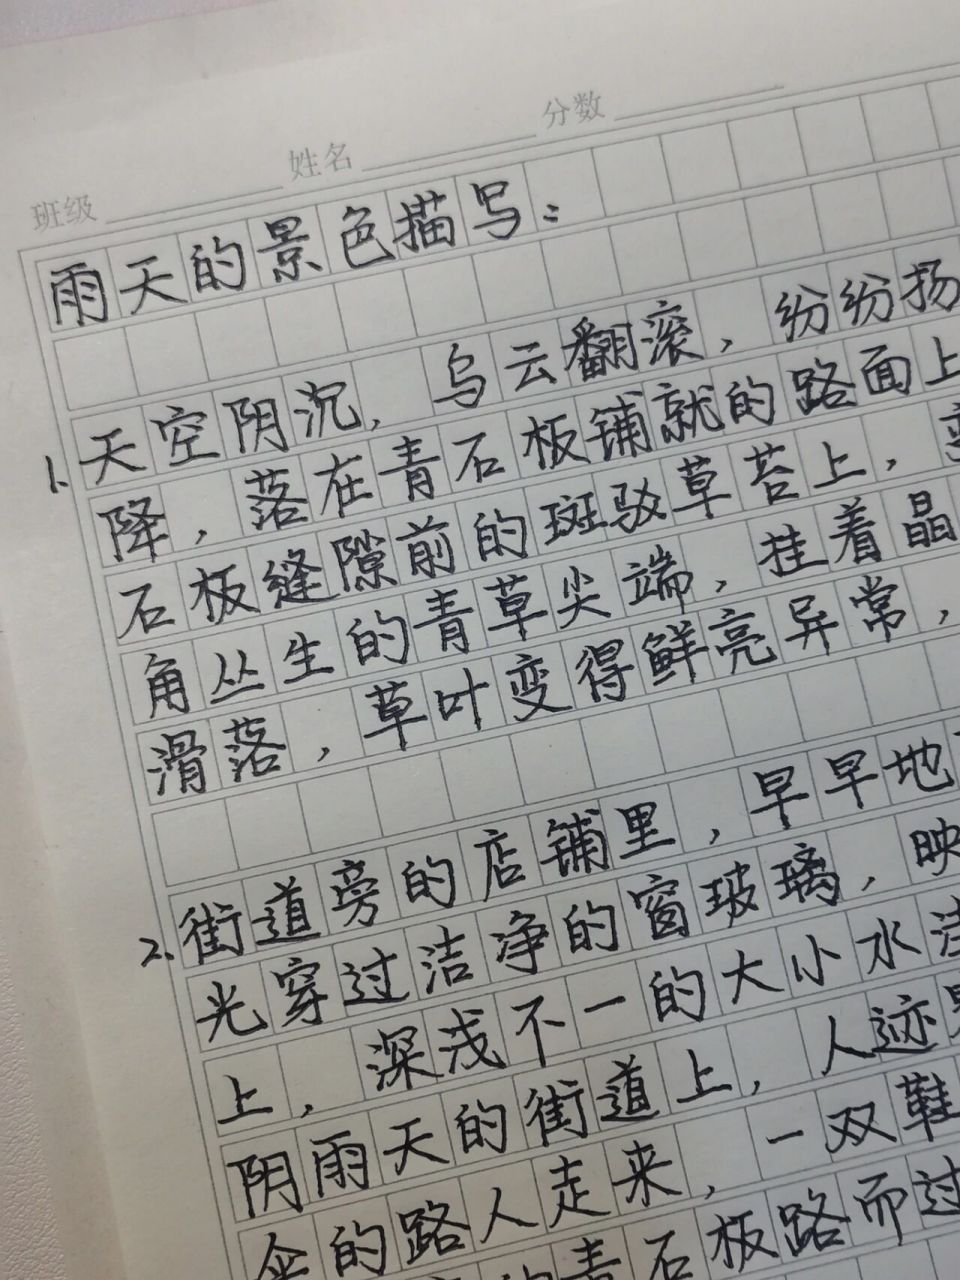 班级 姓名 分数
雨天的景色描写：
1. 天空阴沉，乌云翻滚，纷纷扬
降，落在青石板铺就的路面上
石板缝隙前的斑驳草苔上，
角丛生的青草尖端，挂着晶
滑落，草叶变得鲜亮异常，
2. 街道旁的店铺里，早早地
光穿过洁净的窗玻璃，映
上，深浅不一的大小水洼
阴雨天的街道上，人迹
伞的路人走来，一双鞋
青石板路而过